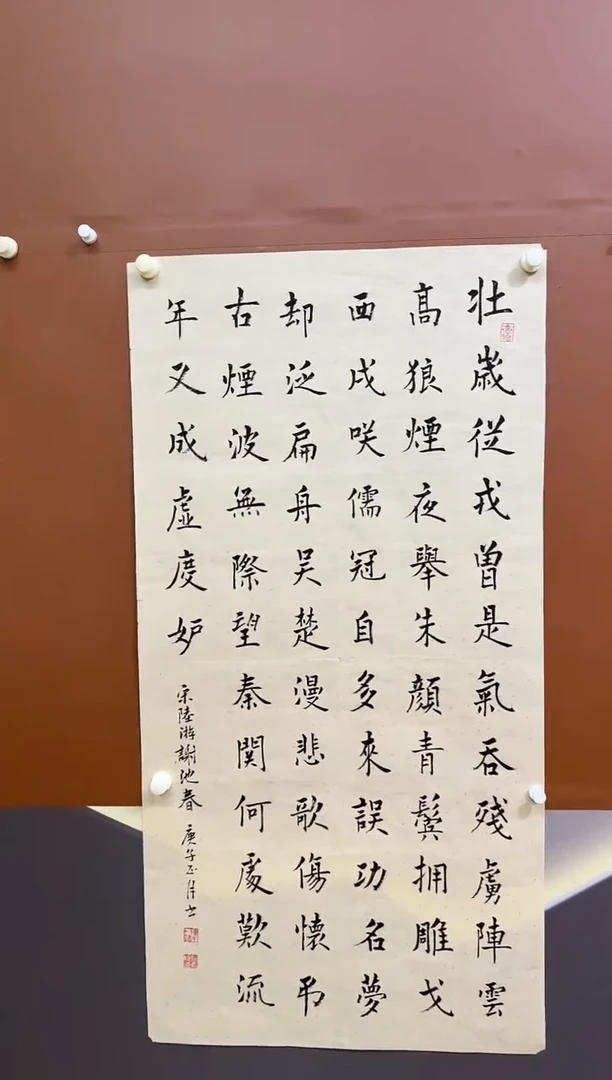 壮歲從戎曾是氣吞殘虜陣雲
髙狼煙夜舉朱顏青鬢拥雕戈
西戍咲儒冠自多來誤功名夢
却泛扁舟吴楚漫悲歌傷懷弔
古煙波無際望秦関何處歎流
年又成虛度妒
宋陸游謝池春 庚子正月书